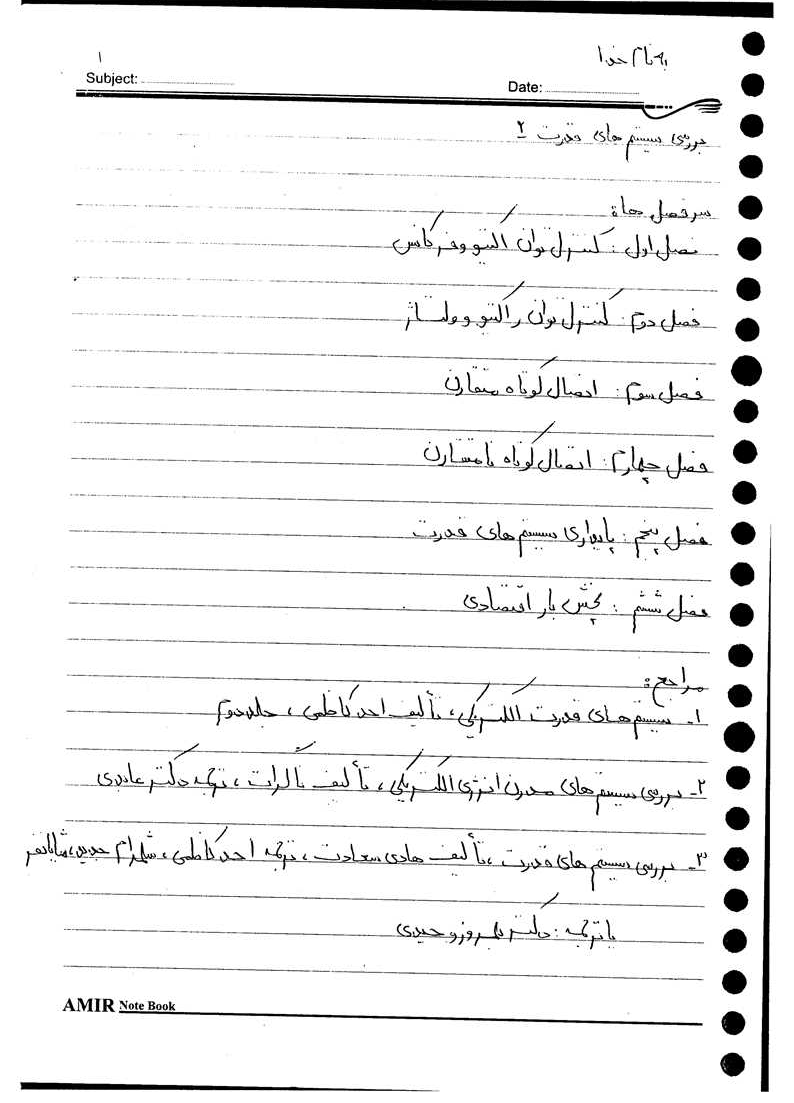 به نام خدا
۱
Subject:
Date:
بررسی سیستم های قدرت ۲
سرفصل ها:
فصل اول: کنترل توان اکتیو و فرکانس
فصل دوم: کنترل توان راکتیو و ولتاژ
فصل سوم: اتصال کوتاه متقارن
فصل چهارم: اتصال کوتاه نامتقارن
فصل پنجم: پایداری سیستم های قدرت
فصل ششم: پخش بار اقتصادی
مراجع:
۱- سیستم های قدرت الکتریکی، تألیف احد کاظمی، جلد دوم
۲- بررسی سیستم های مدرن انرژی الکتریکی، تألیف ناگرات، ترجمه دکتر عابدی
۳- بررسی سیستم های قدرت، تألیف هادی سعادت، ترجمه احد کاظمی، شهرام جدید،
یا ترجمه: دکتر بهروز وحیدی
AMIR Note Book